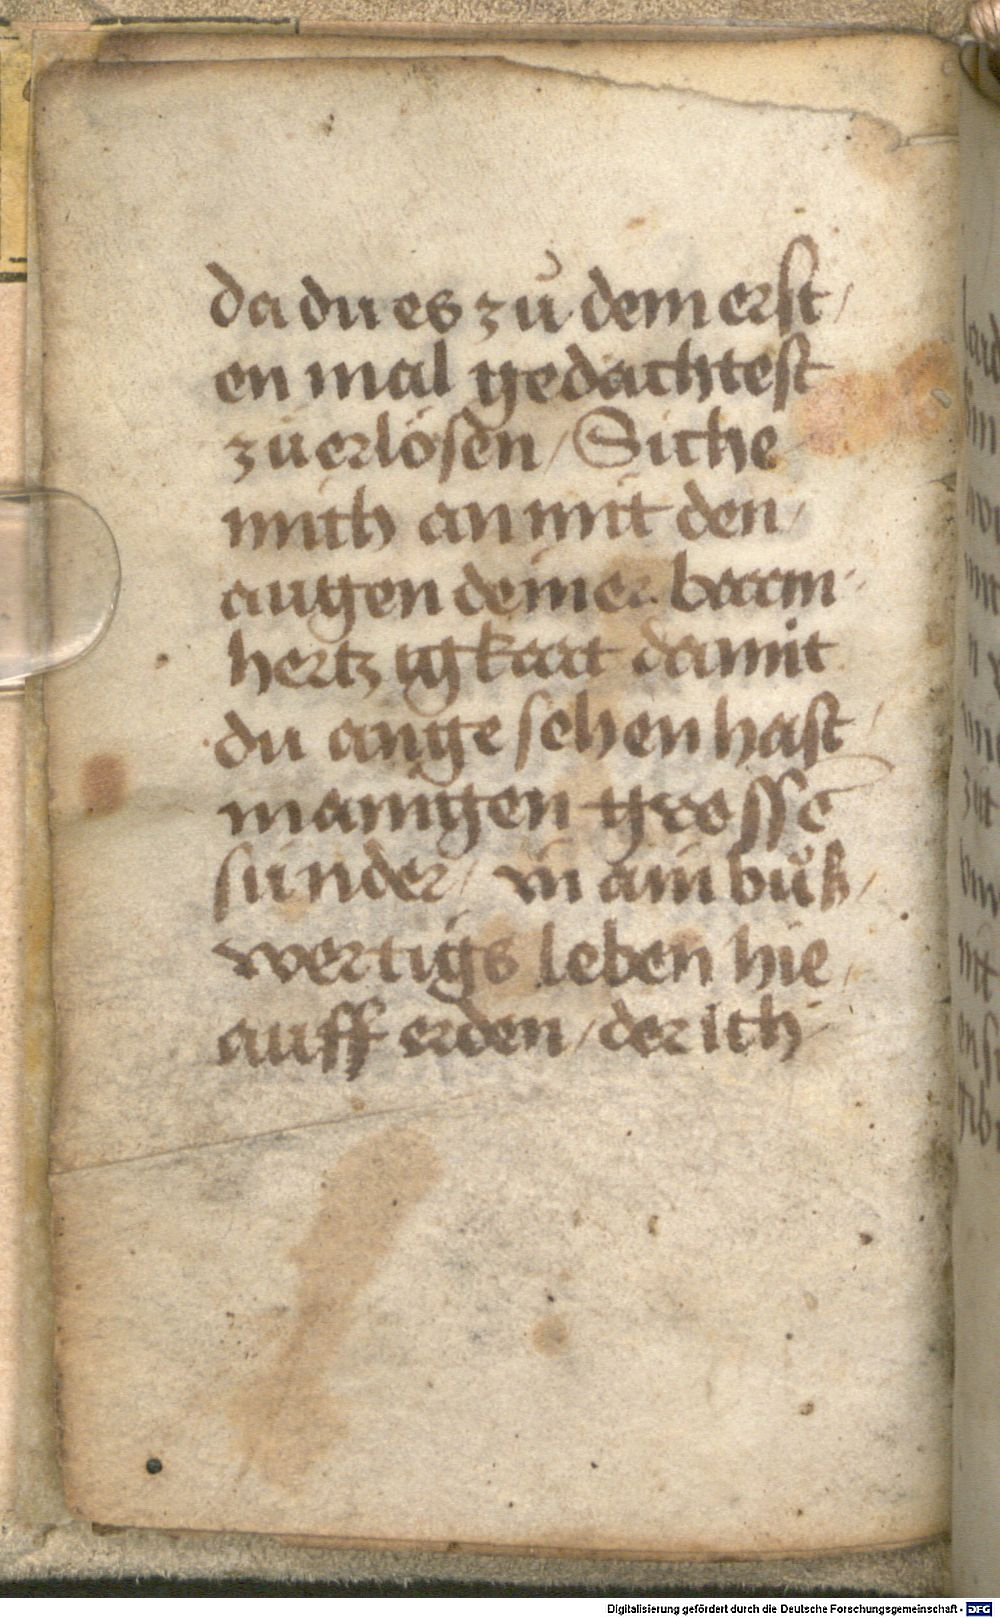 da du es zů dem erst/
en mal gedachtest
zuerlösen / Siche
mich an mit den/
augen deiner barm-
hertzigkait damit
du ange sehen hast/
manigen grosse
sünder / in ain bůß/
wertigs leben hie/
auff erden / der ich
Digitalisierung gefördert durch die Deutsche Forschungsgemeinschaft - DFG